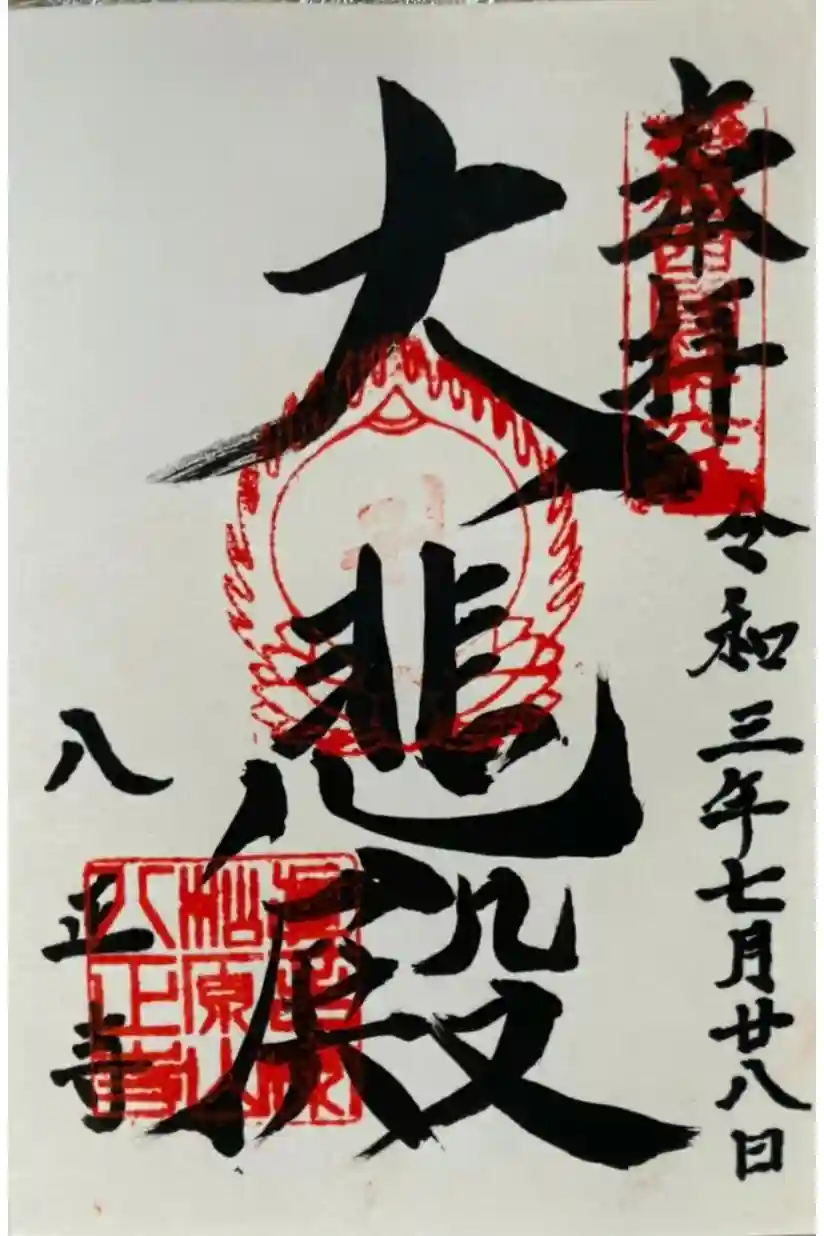 奉拝
令和三年七月廿八日
大悲殿
八正寺
松原山
八正寺